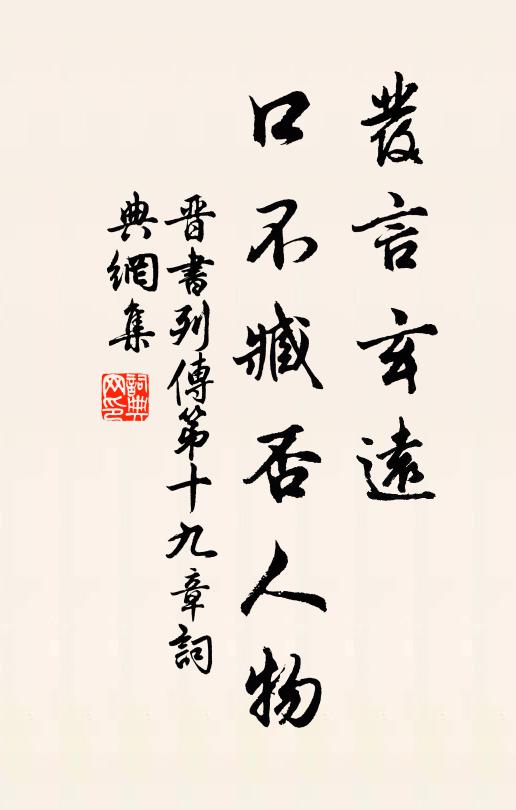 發言玄遠
口不臧否人物
晉書列傳第十九章詞
典網集
詞典網印